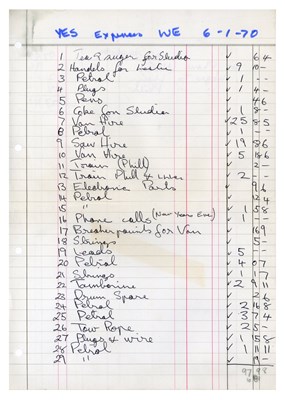 YES Expenses WE 6-1-70
1 Tea & sugar for Studio 6 4
2 Handels for 9 10 -
3 Petrol 1 - -
4 Plugs 1 4 -
5 Pens 4 6
6 Coke for Studio 1 8 -
7 Van Hire 25 8 5
8 Petrol 1 - -
9 Saw Hire 19 8 6
10 Van Hire 5 14 6
11 Train (Phill) 2 -
12 Train Phill & 2 - -
13 Electronic Parts 9 6
14 Petrol 12 4
15 " 1 5 8
16 Phone calls (New Years Eve) 1 - -
17 Breaker points for Van 16 9
18 Strings 5 -
19 Leads 5 - -
20 Petrol 4 0 7
21 Strings 1 1 7
22 Tamborine 2 9 11
23 Drum Spare 2 6
24 Petrol 2 16 8
25 Petrol 3 7 4
26 Tow Rope 2 5 -
27 Plugs & wire 1 5 8
28 Petrol 1 11 11
29 " 9 -